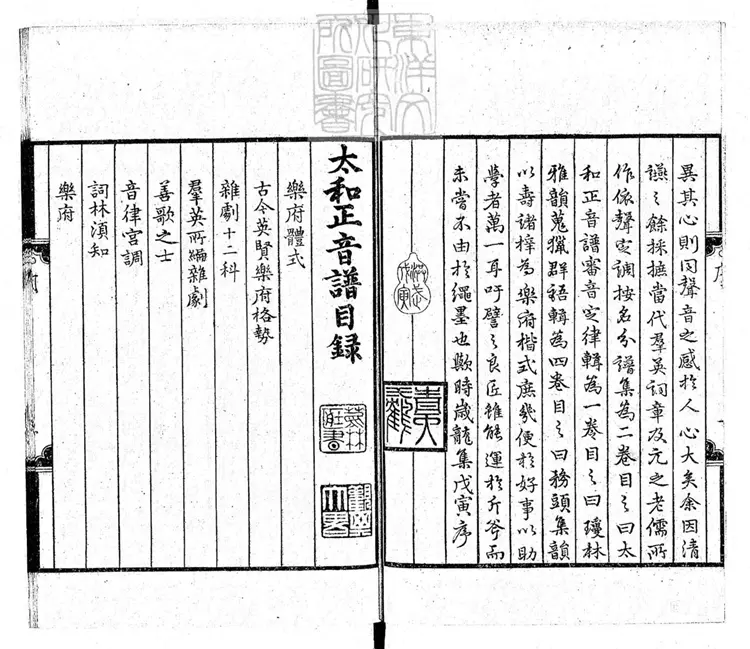 異其心則同聲音之感於人心大矣余因清
讌之餘採摭當代羣英詞章及元之老儒所
作依聲定調按名分譜集為二卷目之曰太
和正音譜審音定律輯為一卷目之曰瓊林
雅韻蒐獵群語輯為四卷目之曰務頭集韻
以壽諸梓為樂府楷式庶幾便於好事以助
學者萬一耳吁譬之良匠雖能運於斤斧而
未嘗不由於繩墨也歟時歳龍集戊寅序
太和正音譜目録
樂府體式
古今英賢樂府格勢
雜劇十二科
羣英所編雜劇
善歌之士
音律宮調
詞林湏知
樂府
序